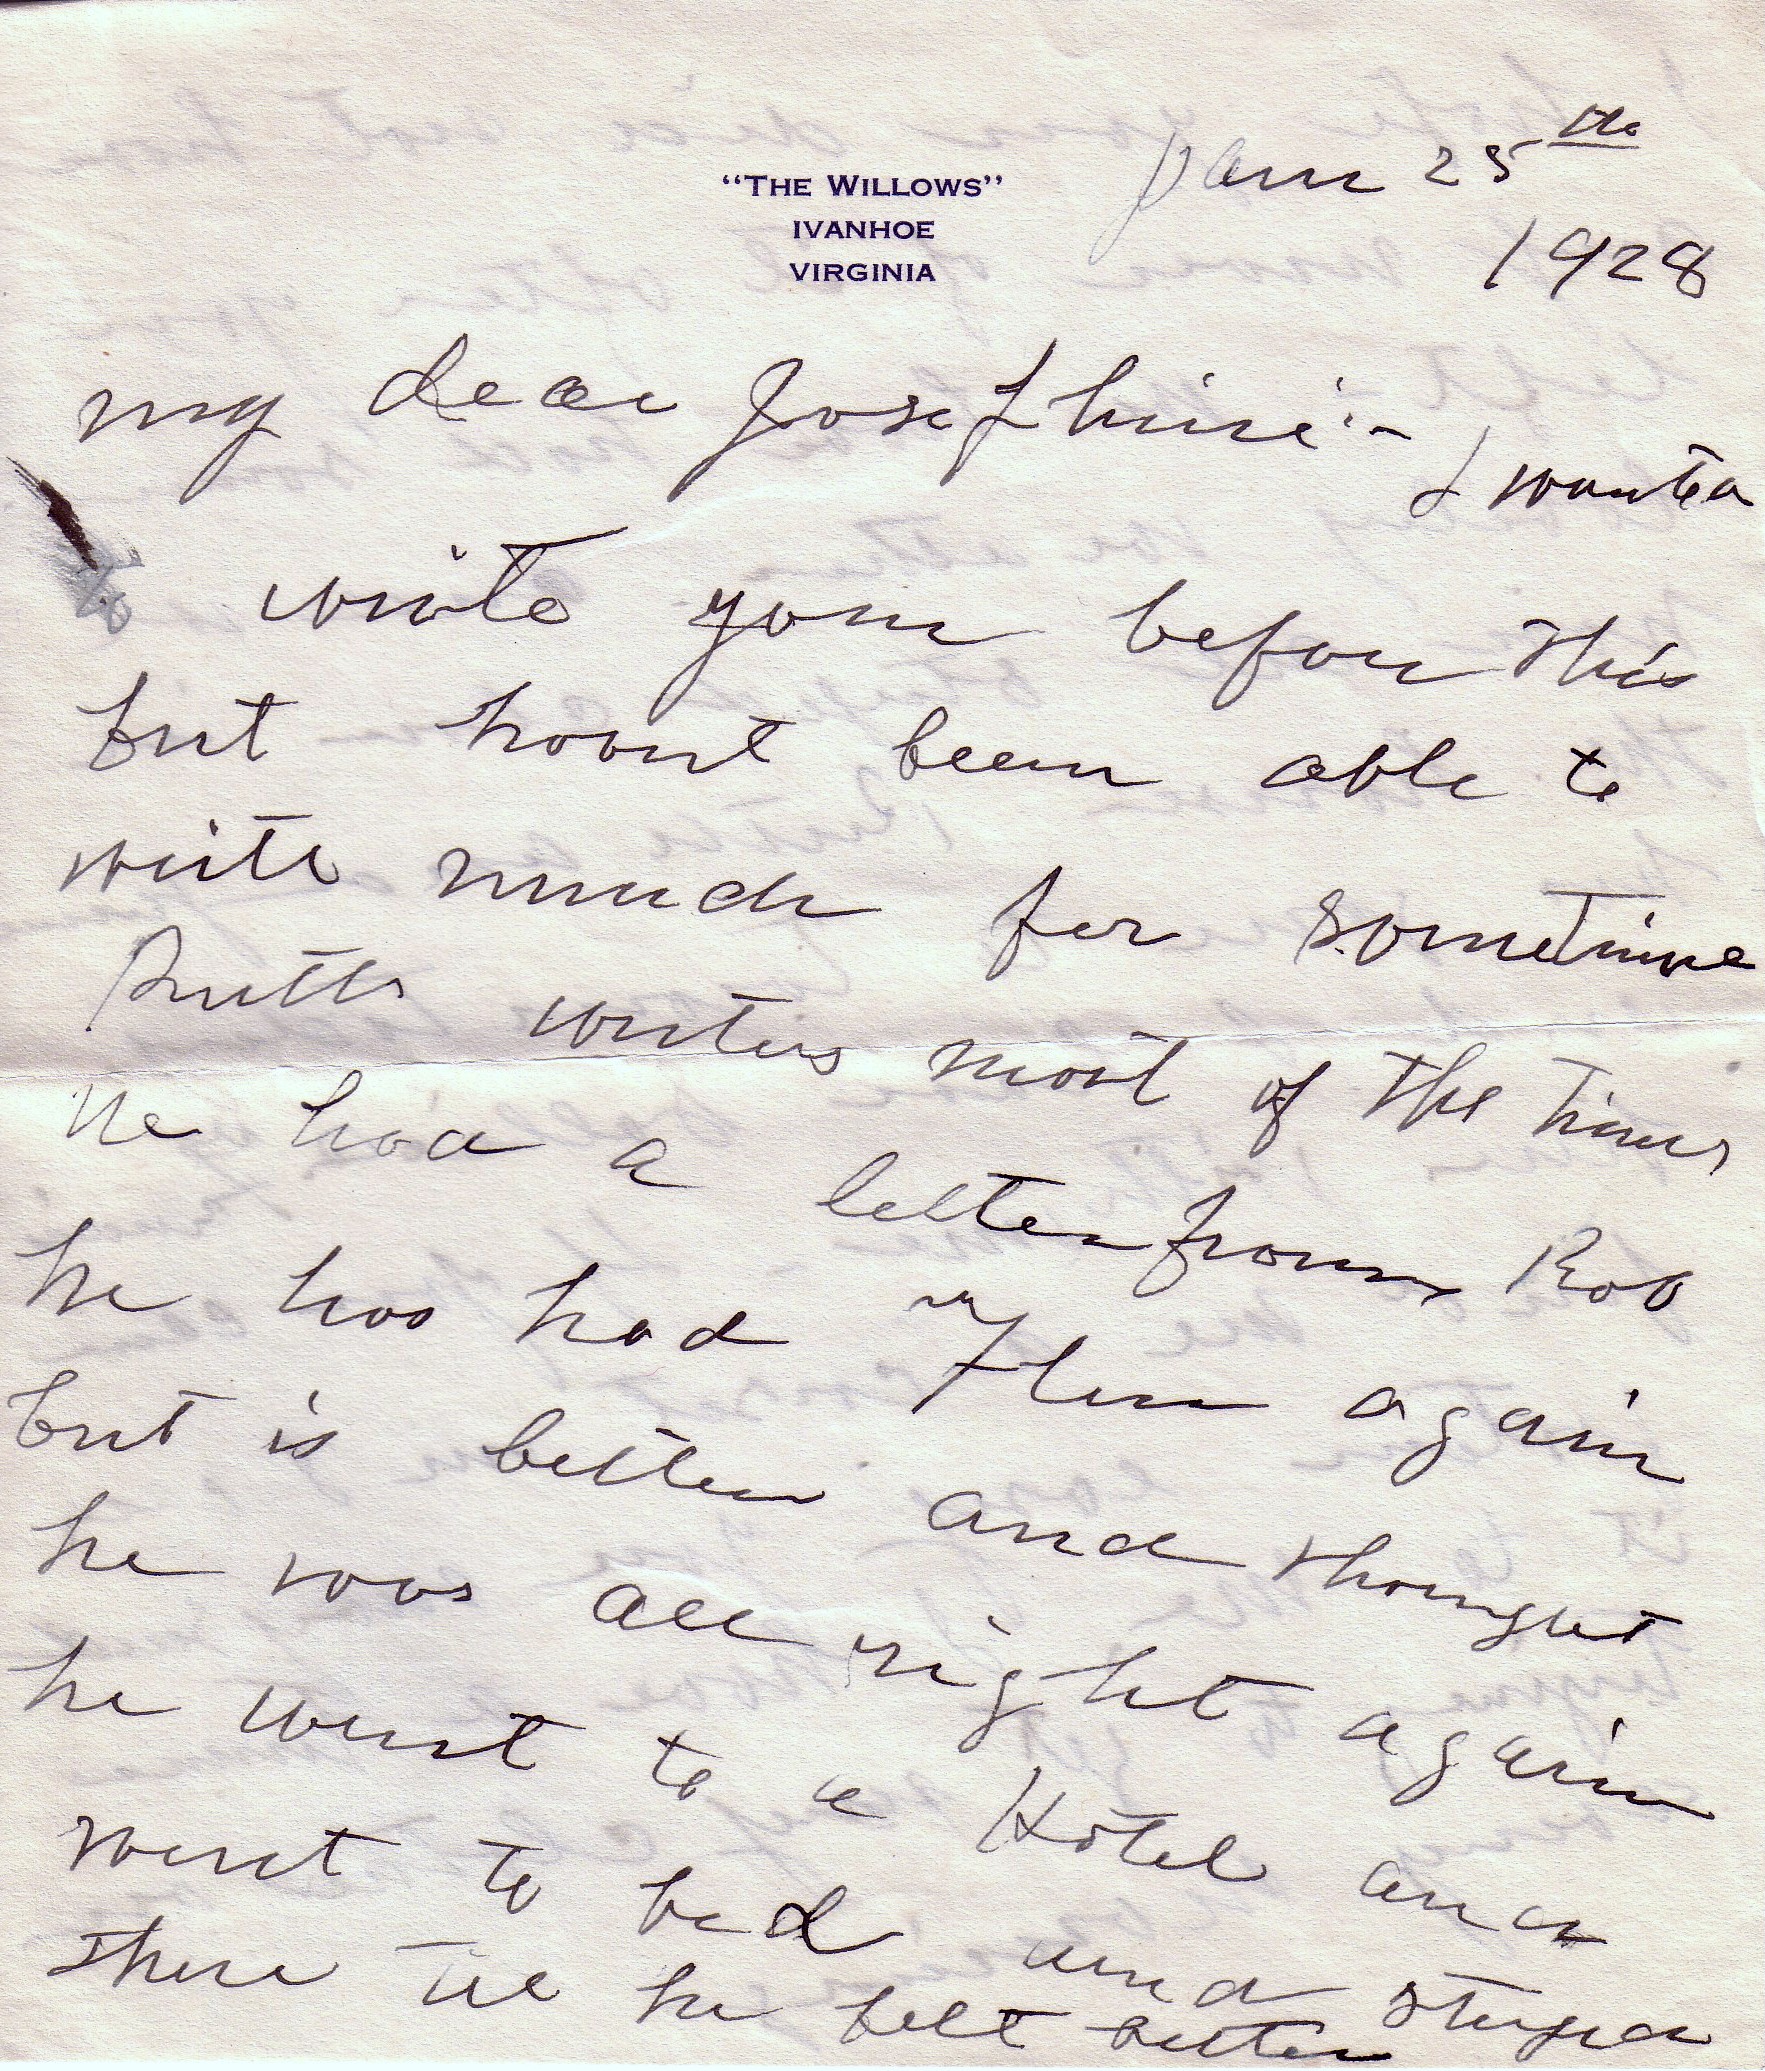 "THE WILLOWS"
IVANHOE
VIRGINIA
Jan 25th
1928
My dear Josephine:-
I wanted
to write you before this
but havnt been able to
write much for sometime
Ruth writes most of the times
We had a letter from Rob
he has had Flu again
but is better and thought
he was all right again
he went to a Hotel and
went to bed and stayed
there till he felt better